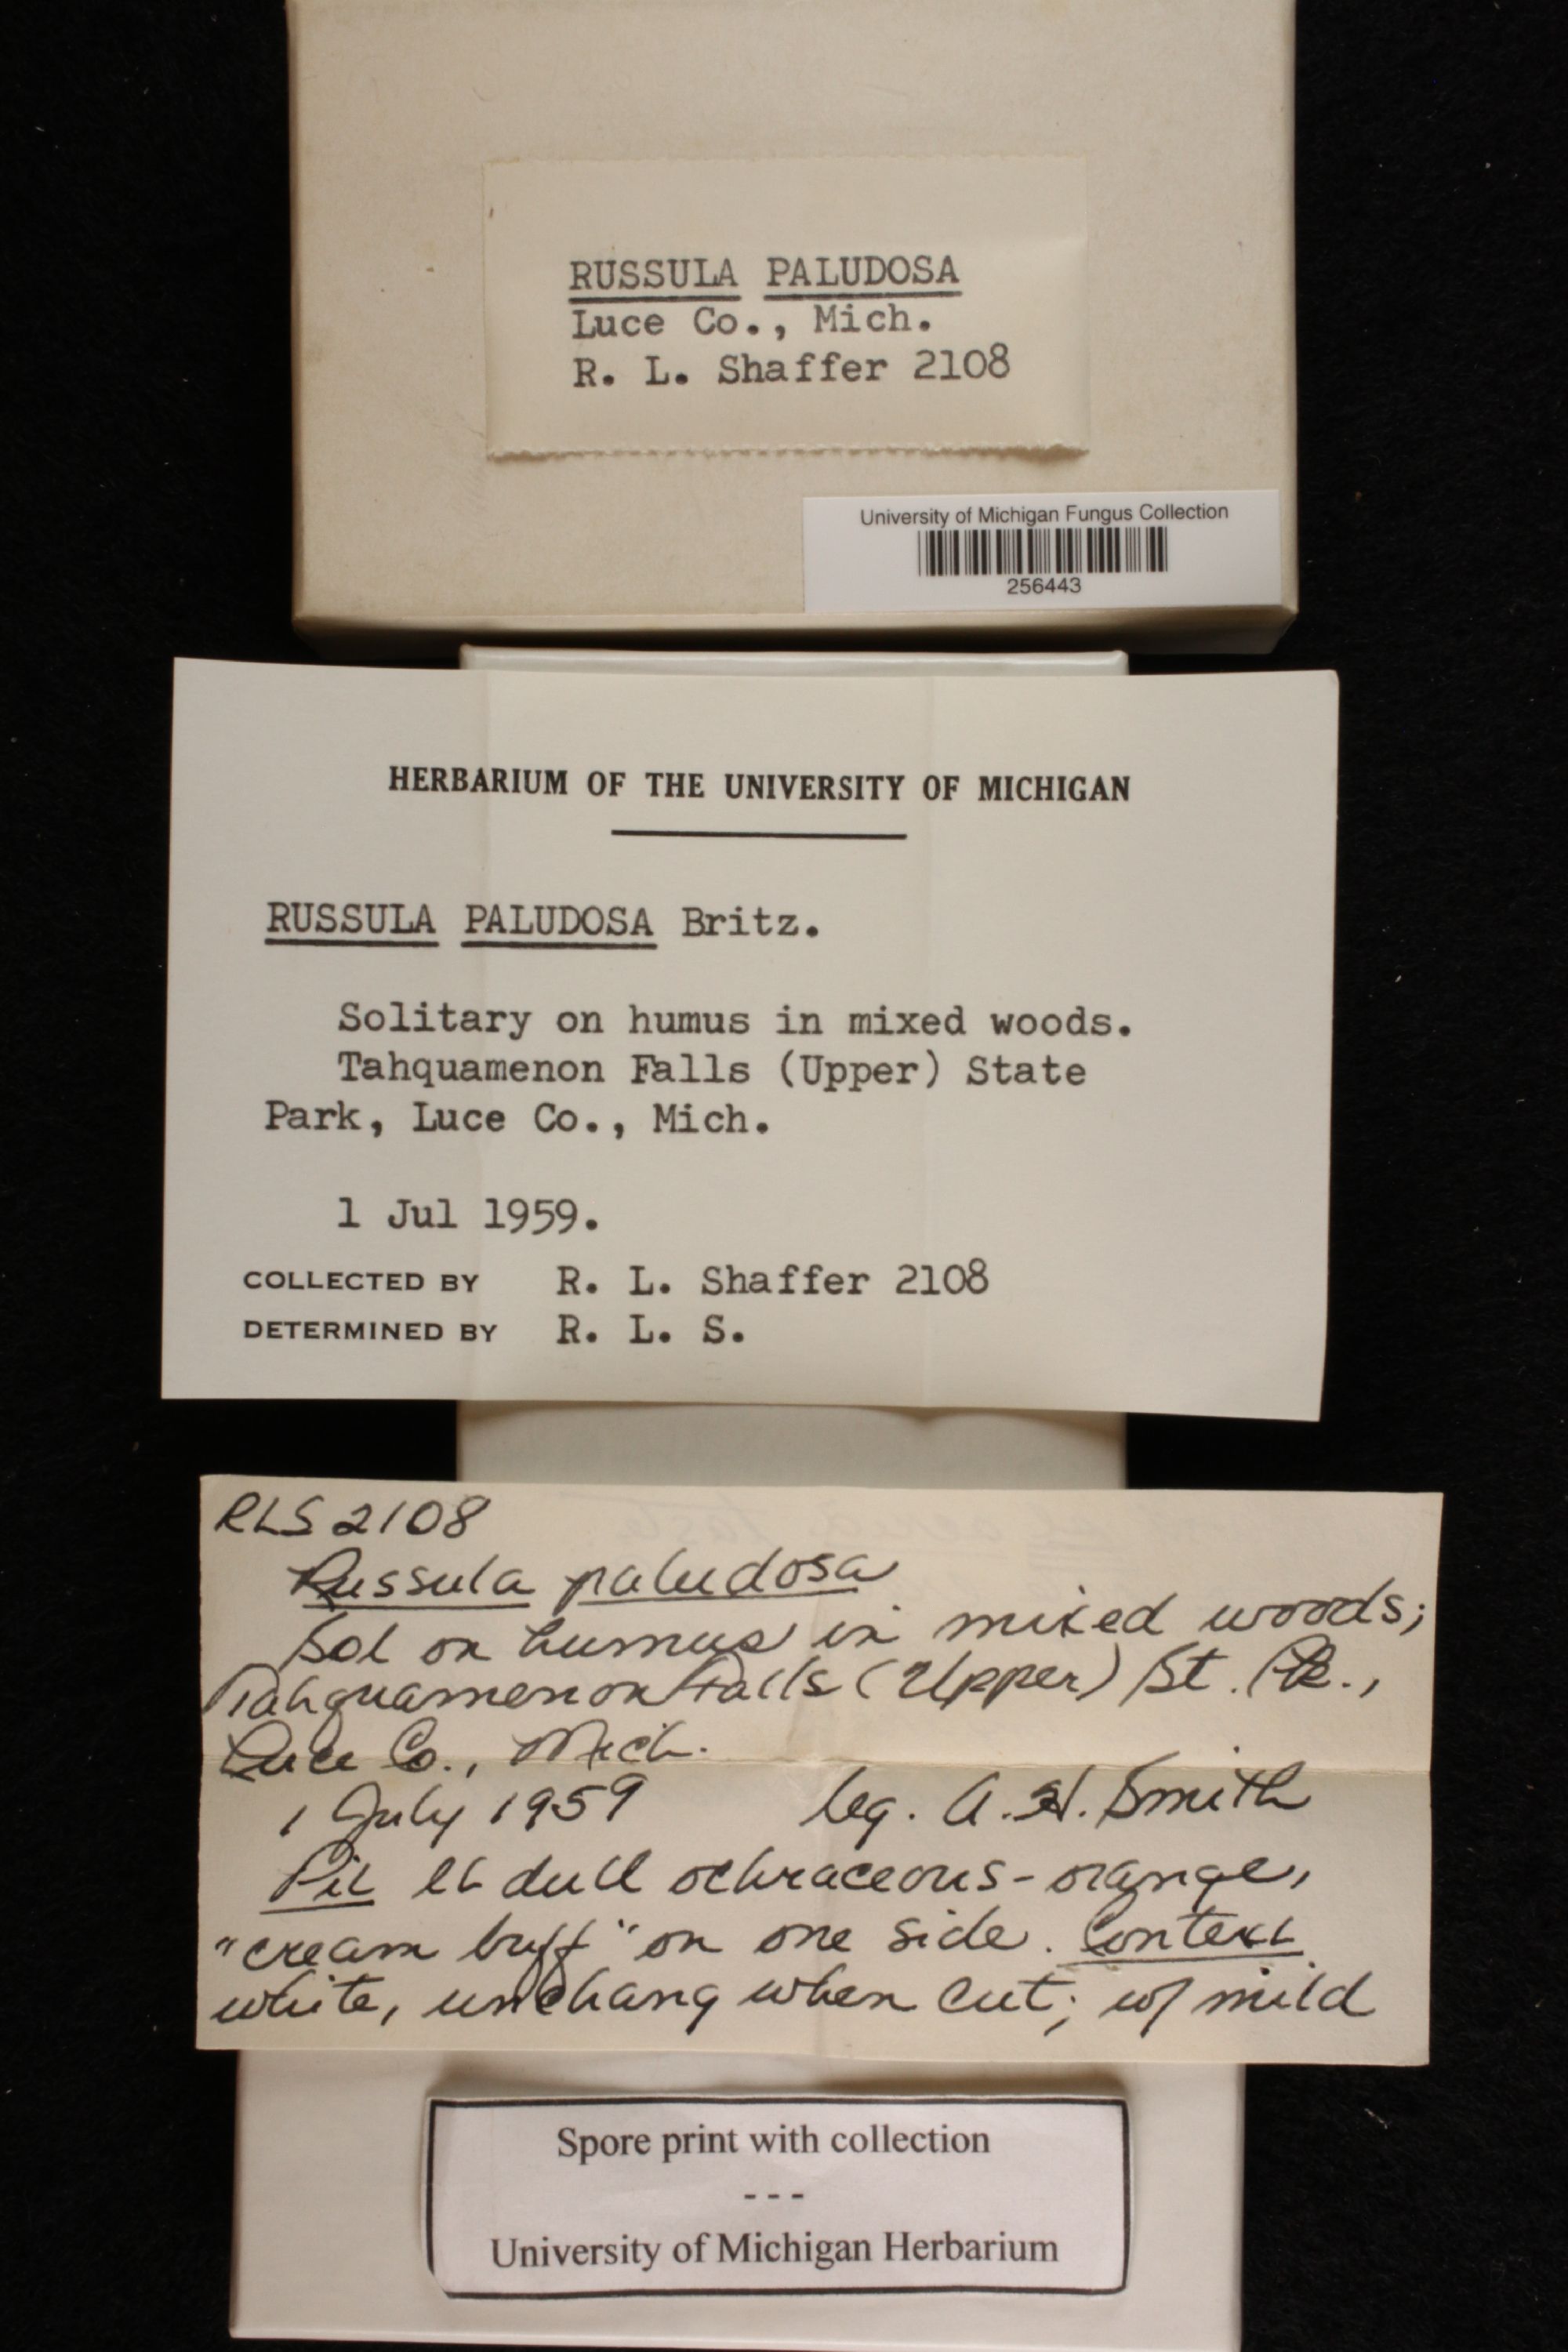 RUSSULA PALUDOSA
Luce Co., Mich.
R. L. Shaffer 2108
University of Michigan Fungus Collection
256443
HERBARIUM OF THE UNIVERSITY OF MICHIGAN
RUSSULA PALUDOSA Britz.
Solitary on humus in mixed woods.
Tahquamenon Falls (Upper) State
Park, Luce Co., Mich.
1 Jul 1959.
COLLECTED BY R. L. Shaffer 2108
DETERMINED BY R. L. S.
RLS 2108
Russula paludosa
Sol on humus in mixed woods;
Tahquamenon Falls (Upper) St. Pk.,
Luce Co., Mich.
1 July 1959 leg. A. H. Smith
Pil lt dull ochraceous-orange,
"cream buff" on one side. Context
white, unchang when cut; w/ mild
Spore print with collection
---
University of Michigan Herbarium